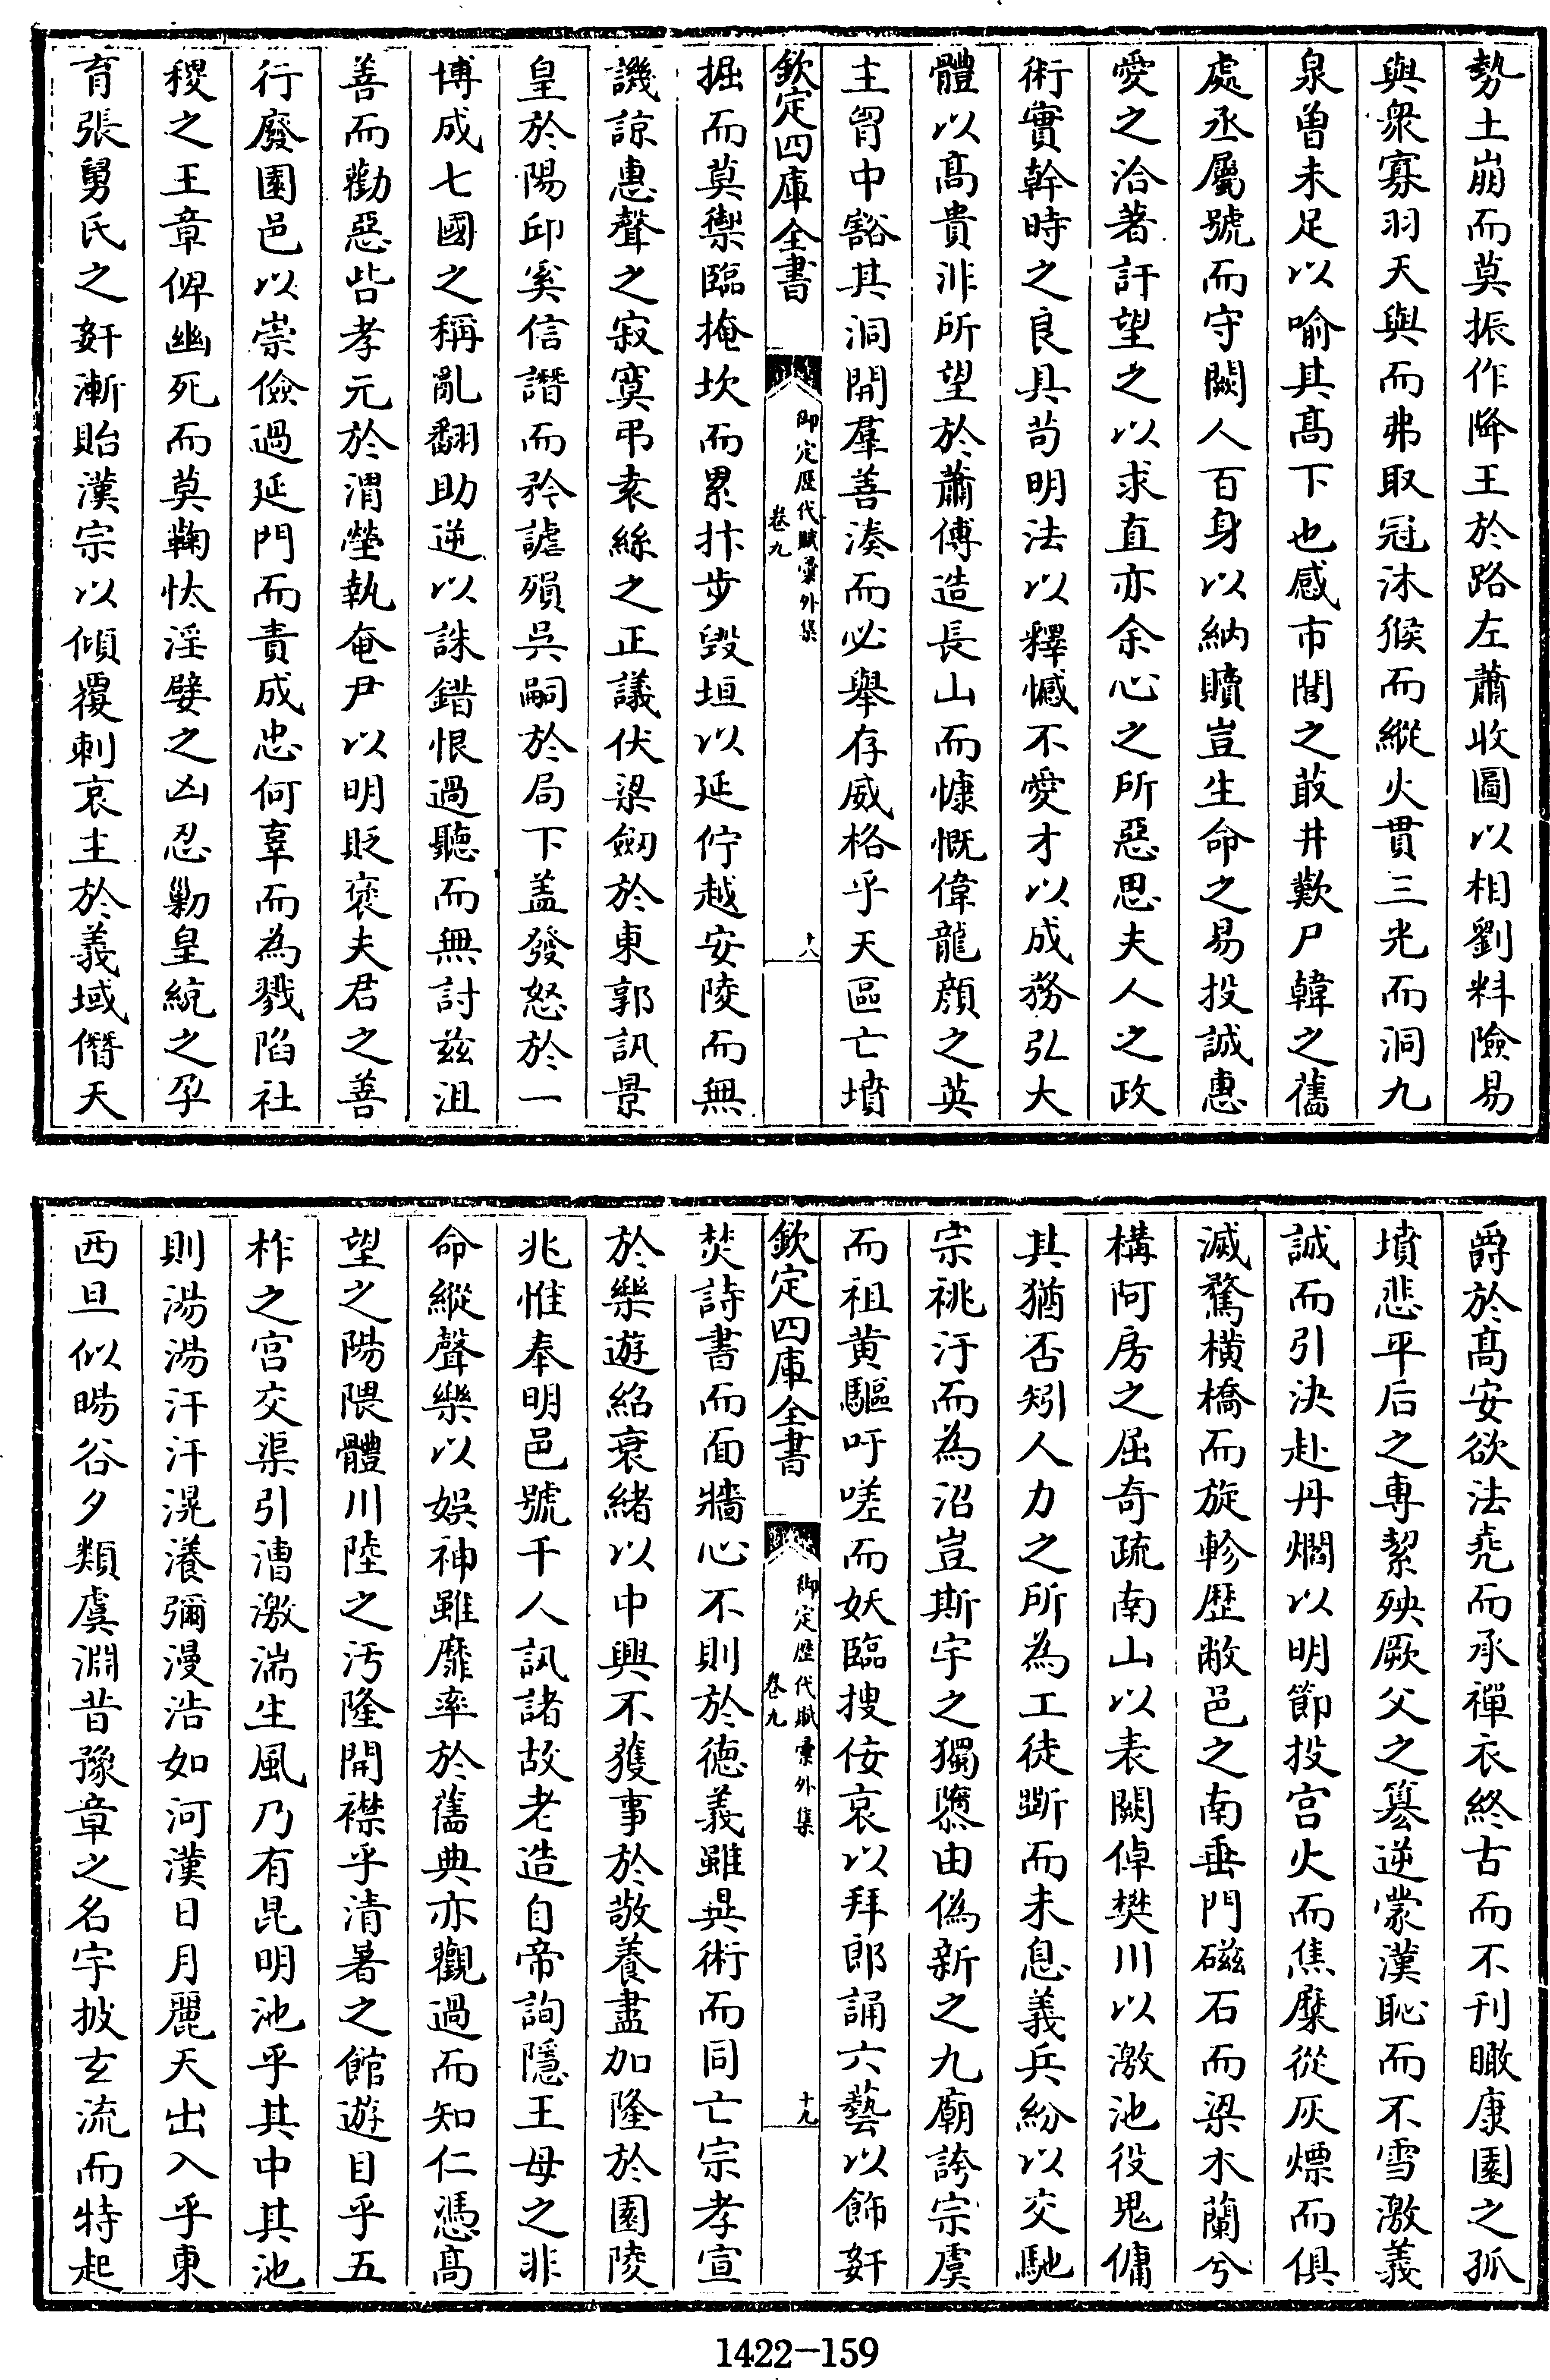 勢土崩而莫振作降王於路左蕭收圖以相劉料險易
與衆寡羽天與而弗取冠沐猴而縱火貫三光而洞九
泉曽未足以喻其髙下也感市閭之菆井歎尸韓之舊
處丞屬號而守闕人百身以納贖豈生命之易投誠惠
愛之洽著訐望之以求直亦余心之所惡思夫人之政
術實幹時之良具茍明法以釋憾不愛才以成務弘大
體以髙貴非所望於蕭傅造長山而慷慨偉龍顔之英
主胷中豁其洞開羣善湊而必舉存威格乎天區亡墳
欽定四庫全書 御定歴代賦彚外集 卷九 十八
掘而莫禦臨掩坎而累抃步毀垣以延佇越安陵而無
譏諒惠聲之寂寞弔袁絲之正議伏梁劒於東郭訊景
皇於陽邱奚信譖而矜謔殞吳嗣於局下盖發怒於一
博成七國之稱亂翻助逆以誅錯恨過聽而無討兹沮
善而勸惡呰孝元於渭塋執奄尹以明貶褒夫君之善
行廢園邑以崇儉過延門而責成忠何辜而為戮陷社
稷之王章俾幽死而莫鞠忲淫嬖之凶忍勦皇統之孕
育張舅氏之姧漸貽漢宗以傾覆刺哀主於義域僭天
爵於髙安欲法堯而承禪衣終古而不刊瞰康園之孤
墳悲平后之專絜殃厥父之簒逆蒙漢恥而不雪激義
誠而引決赴丹爓以明節投宫火而焦糜從灰熛而俱
滅驚橫橋而旋軫歴敝邑之南垂門磁石而梁木蘭兮
構阿房之屈奇疏南山以表闕倬樊川以激池役鬼傭
其猶否矧人力之所為工徒斲而未息義兵紛以交馳
宗祧汙而為沼豈斯宇之獨隳由偽新之九廟誇宗虞
而祖黄驅吁嗟而妖臨搜佞哀以拜郎誦六藝以飾姧
欽定四庫全書 御定歴代賦彚外集 卷九 十九
焚詩書而面牆心不則於徳義雖異術而同亡宗孝宣
於樂遊紹衰緒以中興不獲事於敬養盡加隆於園陵
兆惟奉明邑號千人訊諸故老造自帝詢隱王母之非
命縱聲樂以娯神雖靡率於舊典亦觀過而知仁憑髙
望之陽隈體川陸之汚隆開襟乎清暑之館遊目乎五
柞之宫交渠引漕激湍生風乃有昆明池乎其中其池
則湯湯汗汗滉瀁彌漫浩如河漢日月麗天出入乎東
西旦似暘谷夕類虞淵昔豫章之名宇披玄流而特起
1422-159